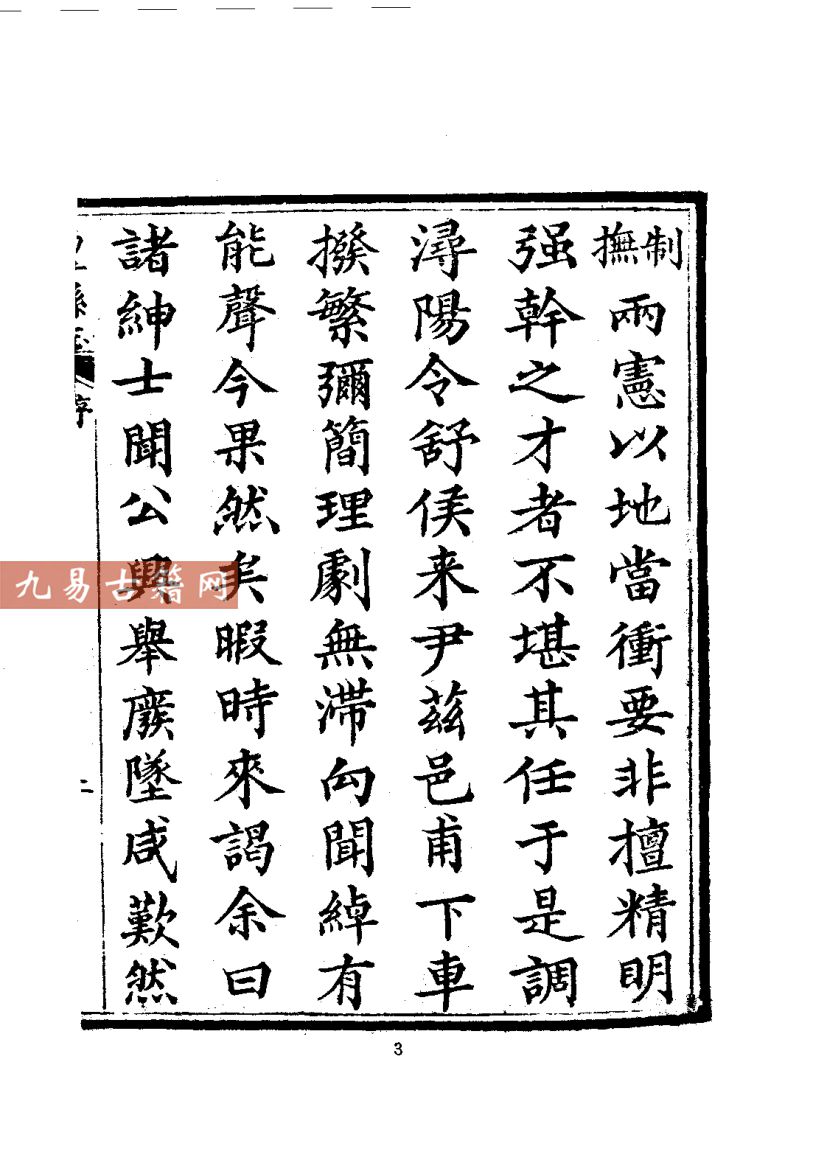 制撫兩憲以地當衝要非擅精明
强幹之才者不堪其任于是調
潯陽令舒侯来尹茲邑甫下車
撥繁彌簡理劇無滯向聞綽有
能聲今果然矣暇時來謁余曰
諸紳士聞公興舉廢墜咸歎然
序
二
九易古籍网
3